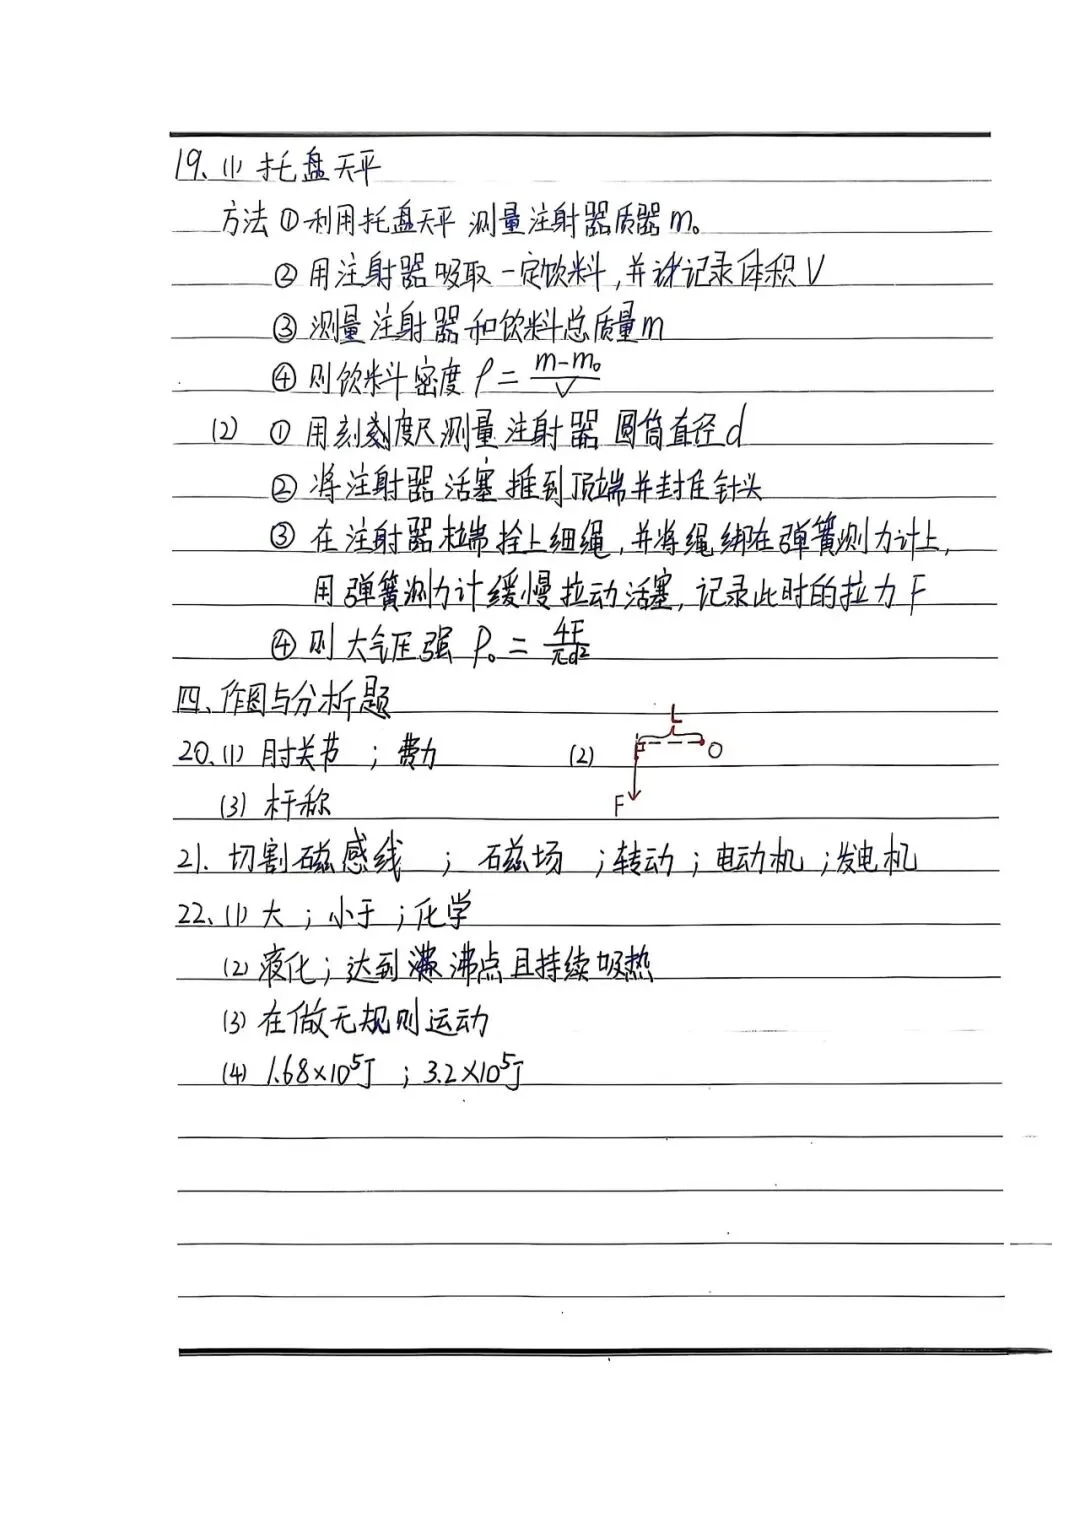 19、(1) 托盘天平
方法 ①利用托盘天平 测量注射器质器 m₀
② 用注射器吸取一定饮料,并记录体积 V
③ 测量注射器和饮料总质量m
④ 则饮料密度 ρ = (m-m₀)/V
(2) ① 用刻度尺测量注射器 圆筒直径 d
② 将注射器活塞推到顶端并封住针头
③ 在注射器末端拴上细绳,并将绳绑在弹簧测力计上,
用弹簧测力计缓慢拉动活塞,记录此时的拉力 F
④ 则大气压强 P₀ = 4F/πd²
四、作图与分析题
20、(1) 肘关节 ; 费力 (2) L O F
(3) 杆称
21. 切割磁感线 ; 磁场 ; 转动 ; 电动机 ; 发电机
22、(1) 大 ; 小于 ; 化学
(2) 液化 ; 达到沸点且持续吸热
(3) 在做无规则运动
(4) 1.68×10⁵J ; 3.2×10⁵J